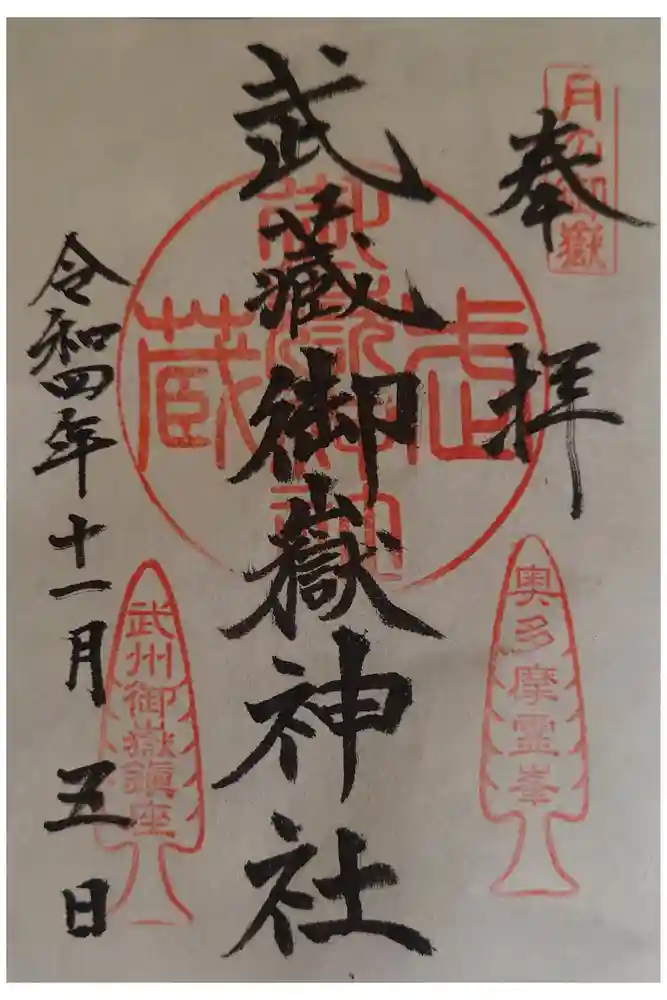 奉拝
月の御嶽
武蔵御嶽神社
武蔵
御嶽
令和四年十一月五日
奥多摩霊峯
武州御嶽鎮座